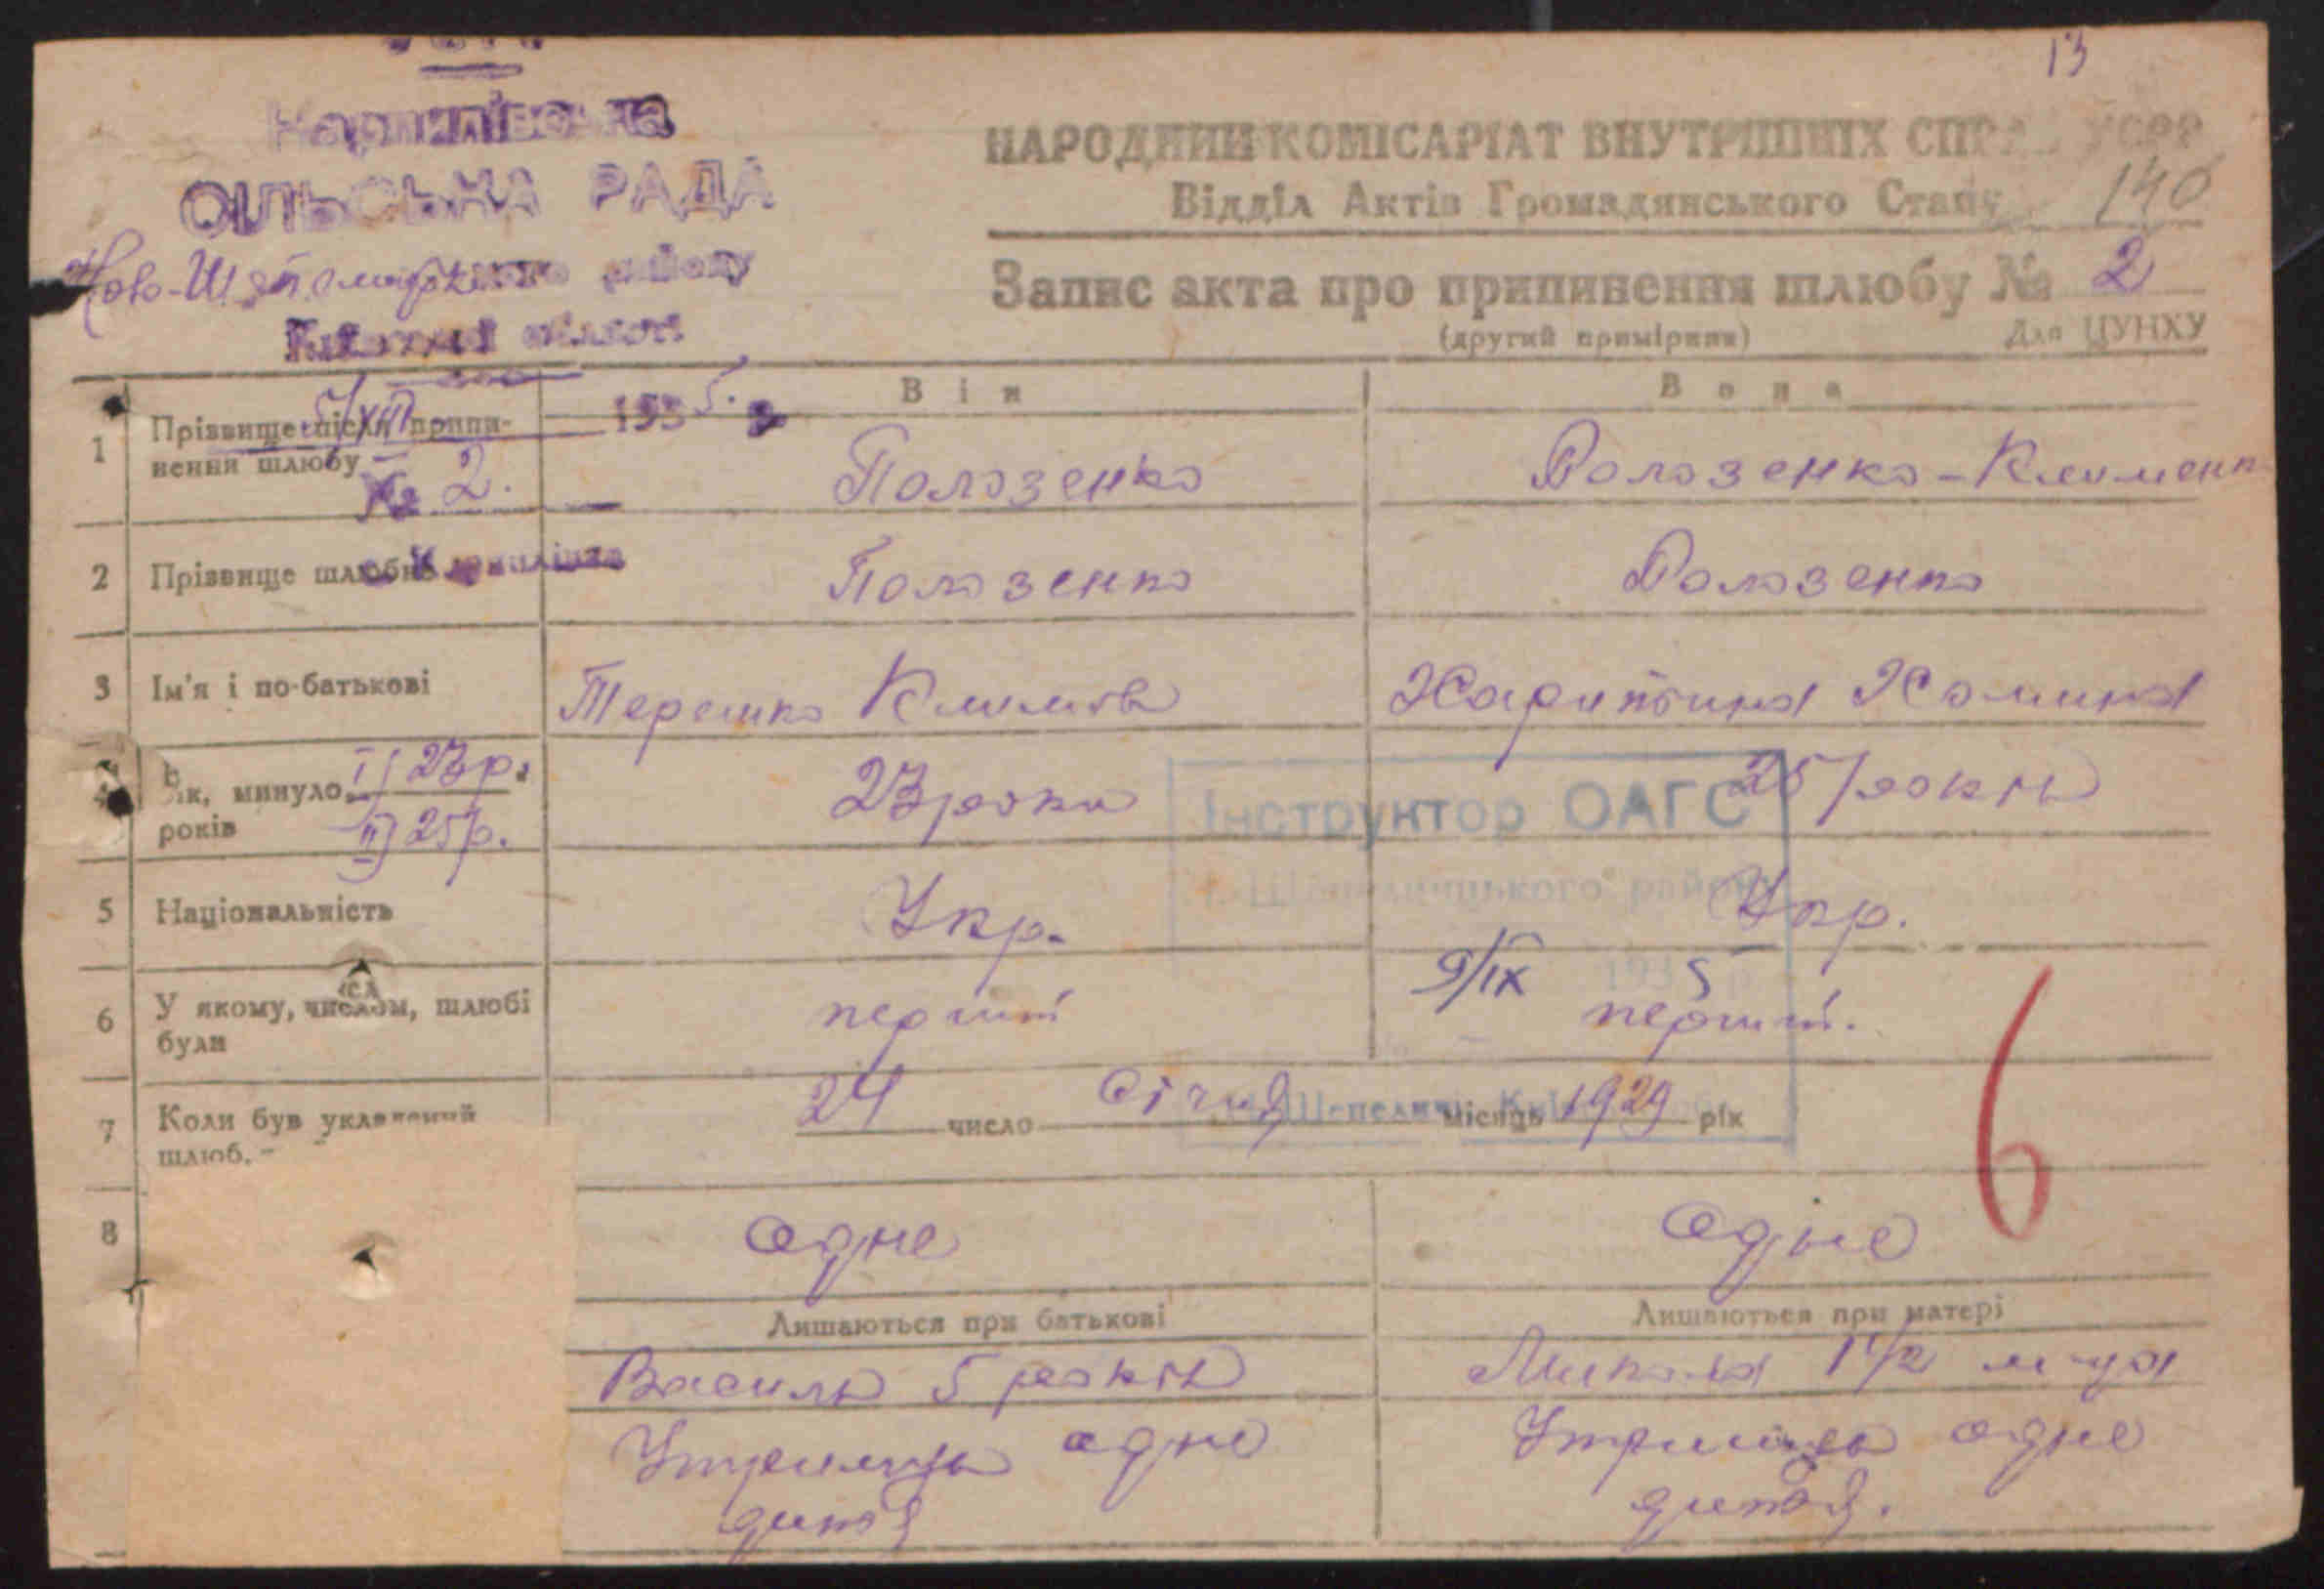 13
Карпилівська
СІЛЬСЬКА РАДА
НАРОДНИЙ КОМІСАРІЯТ ВНУТРІШНІХ СПРАВ УСРР
Відділ Актів Громадянського Стану
140
Ново-Шепелицького району
Київської області
Запис акта про припинення шлюбу № 2
(другий примірник) Для ЦУНХУ
5/XIII 1935 р.
Він Вона
1 Прізвище після припинення шлюбу Полозенко Полозенко-Климен
№ 2.
с. Карпилівка
2 Прізвище шлюбне Полозенко Полозенко
3 Ім'я і по-батькові Терешко Климов Харитина Хомина
4 Вік, минуло I) 23 р. 23 роки 25 років
років II) 25 р.
Інструктор ОАГС
Н.-Шепелицького району
5 Національність Укр. Укр.
9/IX 1935
6 У якому, числом, шлюбі перший перший.
були
7 Коли був укладений 24 число Січня місяць 1929 рік
шлюб.
Н. Шепеличі
6
8 одне одне
Лишаються при батькові Лишаються при матері
Василь 5 років Микола 1 1/2 м-ця
Утримує одне Утримує одне
дитя дитя.